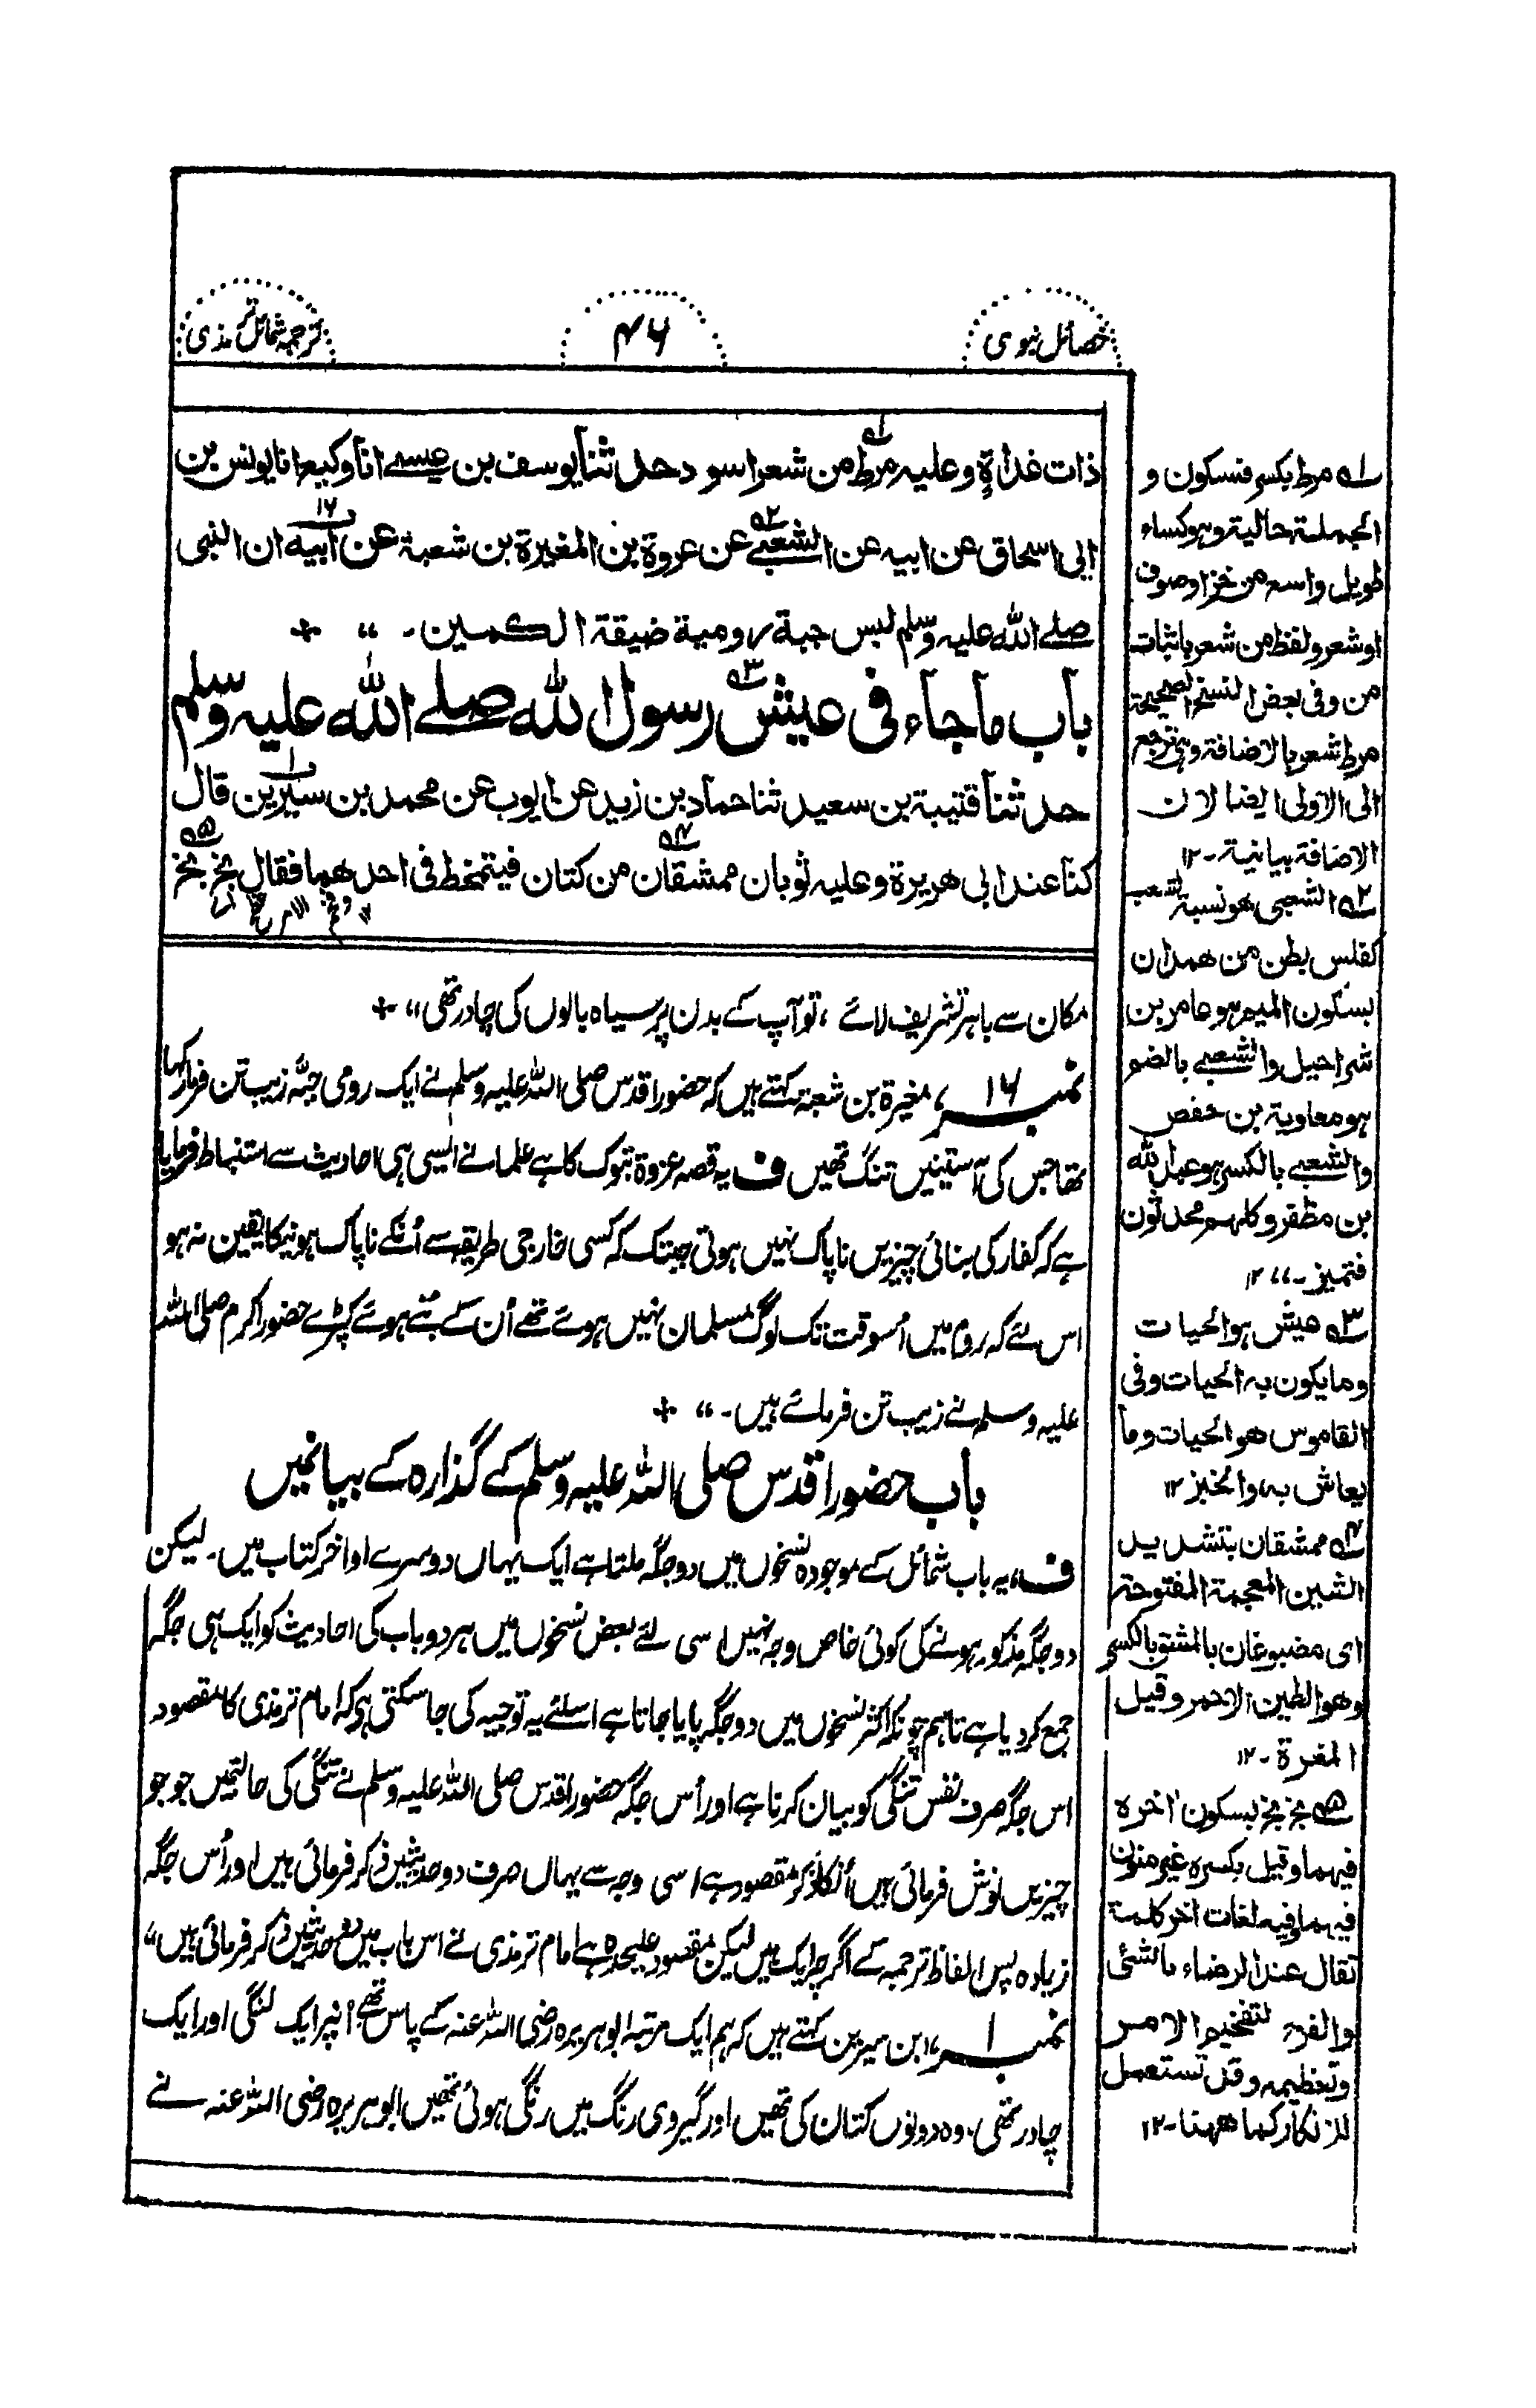 خصائل نبوی
۴۶
ترجمہ شمائل ترمذی
ذات غداۃٍ وعلیہ مرط من شعر اسود حدثنا یوسف بن عیسے انا وکیع انا یونس بن
ابی اسحاق عن ابیہ عن الشعبے عن عروۃ بن المغیرۃ بن شعبۃ عن ابیہ ان النبی
صلے اللہ علیہ وسلم لبس جبۃ رومیۃ ضیقۃ الکمین۔
باب ما جاء فی عیش رسول اللہ صلے اللہ علیہ وسلم
حدثنا قتیبۃ بن سعید ثنا حماد بن زید عن ایوب عن محمد بن سیرین قال
کنا عند ابی ھریرۃ وعلیہ ثوبان ممشقان من کتان فیتمخط فی احدھما فقال بخ بخ
مکان سے باہر تشریف لائے ، تو آپ کے بدن پر سیاہ بالوں کی چادر تھی
نمبر ۱۶، مغیرۃ بن شعبۃ کہتے ہیں کہ حضور اقدس صلی اللہ علیہ وسلم نے ایک رومی جبّہ زیب تن فرمارکہا
تھا جس کی آستینیں تنگ تھیں ف یہ قصہ غزوۃ تبوک کا ہے علما نے ایسی ہی احادیث سے استنباط فرمایا
ہے کہ کفار کی بنائی چیزیں ناپاک نہیں ہوتی جبتک کہ کسی خارجی طریقہ سے اُنکے ناپاک ہونیکا یقین نہ ہو
اس لئے کہ روم میں اُسوقت تک لوگ مسلمان نہیں ہوئے تھے اُن کے بُنے ہوئے کپڑے حضور اکرم صلی اللہ
علیہ وسلم نے زیب تن فرمائے ہیں۔
باب حضور اقدس صلی اللہ علیہ وسلم کے گذارہ کے بیانمیں
ف، یہ باب شمائل کے موجودہ نسخوں میں دو جگہ ملتا ہے ایک یہاں دوسرے اواخر کتاب میں۔ لیکن
دو جگہ مذکور ہونے کی کوئی خاص وجہ نہیں اسی لئے بعض نسخوں میں ہر دو باب کی احادیث کو ایک ہی جگہ
جمع کردیا ہے تاہم چونکہ اکثر نسخوں میں دو جگہ پایا جاتا ہے اسلئے یہ توجیہ کی جاسکتی ہی کہ امام ترمذی کا مقصود
اس جگہ صرف نفس تنگی کو بیان کرنا ہے اور اُس جگہ حضور اقدس صلی اللہ علیہ وسلم نے تنگی کی حالتمیں جو جو
چیزیں نوش فرمائی ہیں اُنکا ذکر مقصود ہے اسی وجہ سے یہاں صرف دو حدیثیں ذکر فرمائی ہیں اور اُس جگہ
زیادہ پس الفاظ ترجمہ کے اگرچہ ایک ہیں لیکن مقصود علیحدہ ہے امام ترمذی نے اس باب میں حدیثیں ذکر فرمائی ہیں
نمبر ۱، ابن سیرین کہتے ہیں کہ ہم ایک مرتبہ ابوہریرہ رضی اللہ عنہ کے پاس تھے اُنپر ایک لنگی اور ایک
چادر تھی، وہ دونوں کتان کی تھیں اور گیروی رنگ میں رنگی ہوئی تھیں ابوہریرہ رضی اللہ عنہ نے
۱ مرط بکسر فسکون و
الجملۃ حالیۃ وہو کساء
طویل واسع من خز او صوف
او شعر ولفظ من شعر باثبات
من وفی بعض النسخ الصحیحۃ
مرط شعر بالاضافۃ وہی ترجع
الی الاولی ایضا لان
الاضافۃ بیانیۃ۔ ۱۲
۲ الشعبی ھو نسبۃ لشعب
کفلس بطن من ھمدان
بسکون المیم ہو عامر بن
شراحیل والشعبے بالضم
ہو معاویۃ بن حفص
والشعبے بالکسر ہو عبداللہ
بن مظفر وکلہم محدثون
فتمیز۔ ۱۲
۳ عیش ہو الحیات
وما یکون بہ الحیات وفی
القاموس ھو الحیات وما
یعاش بہ والخبز ۱۲
۴ ممشقان بتشدید
الشین المعجمۃ المفتوحۃ
ای مصبوغان بالمشق بالکسر
وھو الطین الاحمر وقیل
المغرۃ۔ ۱۲
۵ بخ بخ بسکون اخرہ
فیہما وقیل بکسرہ غیر منون
فیہما وفیہ لغات اخر کلمۃ
تقال عند الرضاء بالشئی
والفرح لتفخیم الامر
وتعظیمہ وقد تستعمل
للانکار کما ھہنا۔ ۱۲